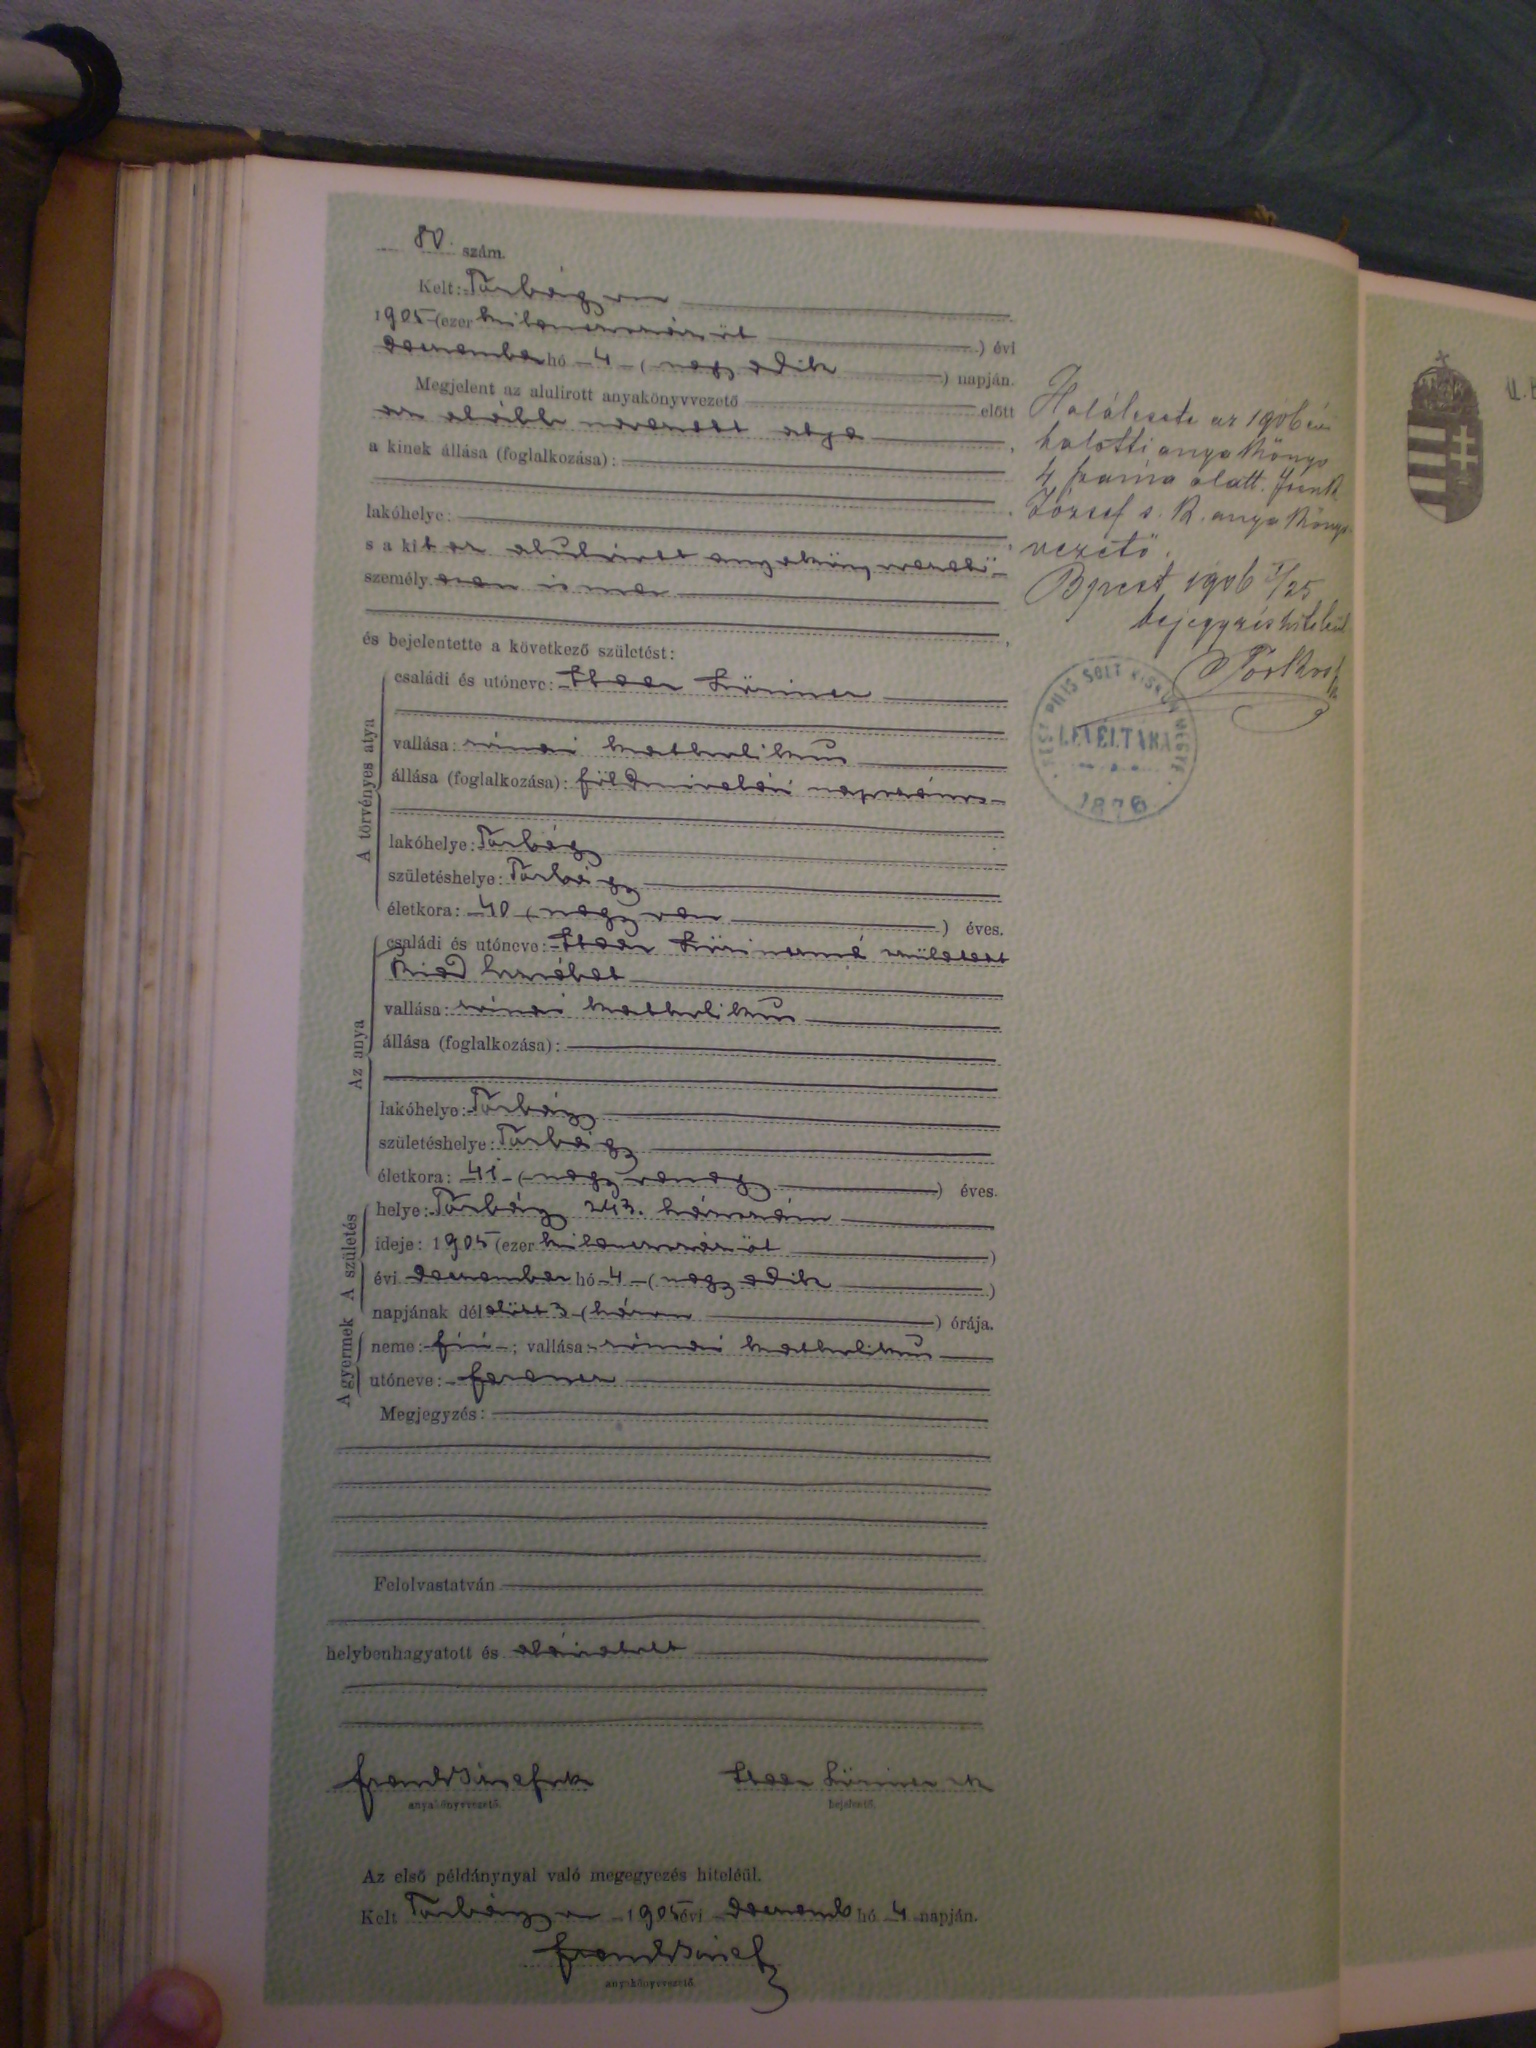 80. szám.
Kelt: Törbágyon
1905 (ezerkilencszázöt) évi
december hó 4 (negyedik) napján.
Megjelent az alulirott anyakönyvvezető előtt
az alább nevezett atya,
a kinek állása (foglalkozása):
lakóhelye:
s a kit az alulirott anyakönyvvezető
személyesen ismer
és bejelentette a következő születést:
A törvényes atya
családi és utóneve: Lőrincz
vallása: római katholikus
állása (foglalkozása): földmivelési napszámos
lakóhelye: Törbágy
születéshelye: Törbágy
életkora: 40 (negyven) éves.
Az anya
családi és utóneve: Lőrinczné született
Ried Erzsébet
vallása: római katholikus
állása (foglalkozása):
lakóhelye: Törbágy
születéshelye: Törbágy
életkora: 41 (negyvenegy) éves.
A születés
helye: Törbágy 243. házszám
ideje: 1905 (ezerkilencszázöt)
évi december hó 4 (negyedik)
napjának délelőtt 3 (három) órája.
A gyermek
neme: fiú; vallása: római katholikus
utóneve: Ferencz
Megjegyzés:
Felolvastatván
helybenhagyatott és aláiratott
anyakönyvvezető.
Lőrincz sk
bejelentő.
Az első példánynyal való megegyezés hiteléül.
Kelt Törbágyon 1905 évi decemb hó 4 napján.
anyakönyvvezető.
Halálesete az 1906 évi
halotti anyakönyv
4 száma alatt. Junk
József s. k. anyakönyv
vezető.
Bpest 1906 I/25
bejegyzés hiteléül
PEST PILIS SOLT KISKUN MEGYE
LEVÉLTÁRA
1876